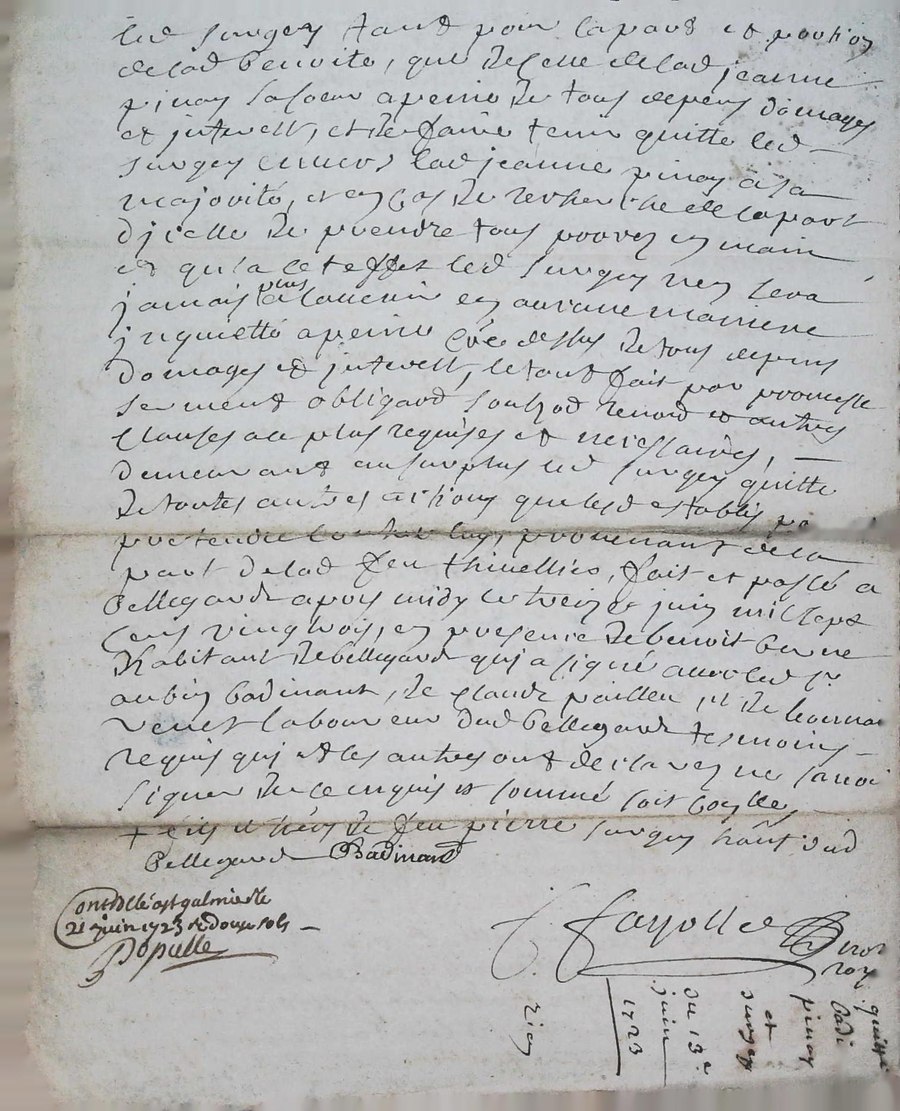 led surgey tant pour la part et portion
de lad benoite, que de celle de lad jeanne
pinay sa soeur a peine de tous depens domages
et jnterest, et de faire tenir quitte led
surgey envers lad jeanne pinay a sa
majorité, et en cas de recherche de la part
djcelle de prendre tous pour en main
et qu'a cet effet led surgey nen sera
jamais plus a lavenir en aucune maniere
jnquietté a peine de tous depens
domages et jnterest, le tout fait par promesse
serment obligaõn et autres
clauses au plus requises et necessaires,
demeurant au surplus led surgey quitte
de toutes autres actions que lesd establis
pretendre contre luy, provenant de la
part de lad feu fait et passé a
bellegarde apres midy le treize juin mil sept
cens vingtrois, en presence de benoit
habitant de bellegarde qui a signé avec led sr
aubin badinant, de claude et de
venet laboureur dud bellegarde tesmoins
requis qui et les autres ont declarez ne scavoir
signer de ce enquis et sommé soit
fils et de feu pierre surgey dud
bellegarde Badinand
Controllé a st galmier le
21 juin 1723 R douze sols
Fayolle
roy
quitt
pinay
et
surgey
du 13e
juin
1723